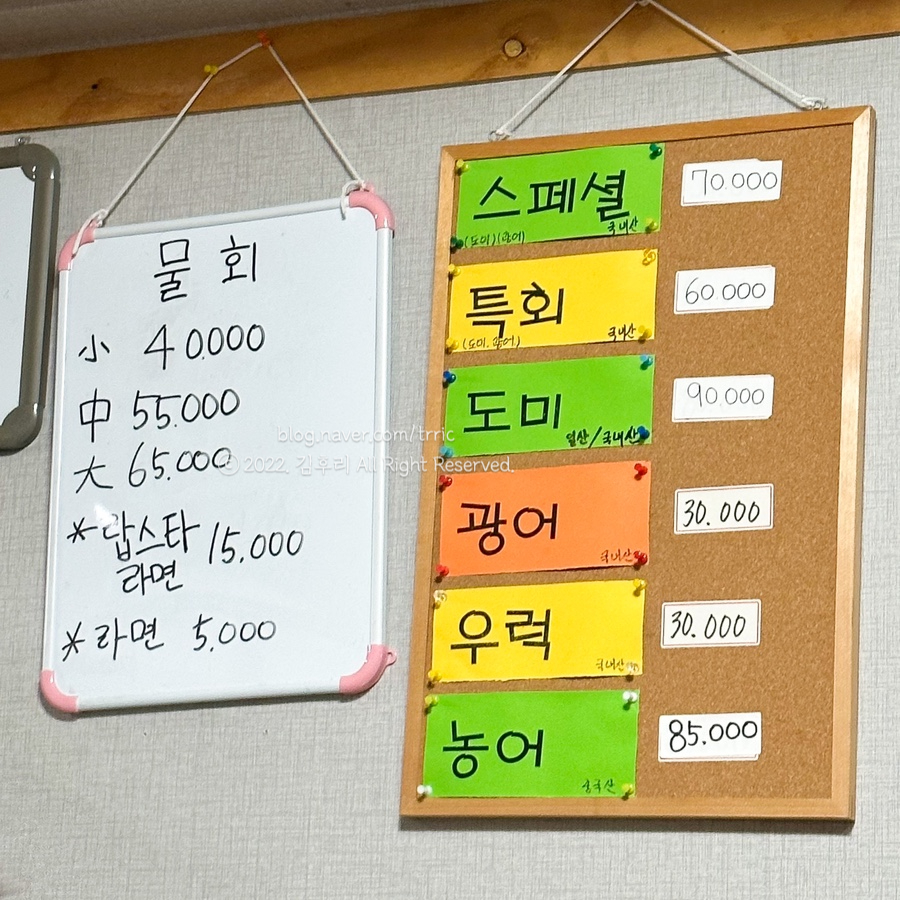 물 회
小 40.000
中 55.000
大 65.000
*랍스타 15.000
라면
*라면 5.000
스페셜 70.000
(도미)(광어) 국내산
특회 60.000
(도미.광어.) 국내산
도미 90.000
일산/국내산
광어 30.000
국내산
우럭 30.000
국내산
농어 85.000
중국산
blog.naver.com/trric
© 2022. 김후리 All Right Reserved.